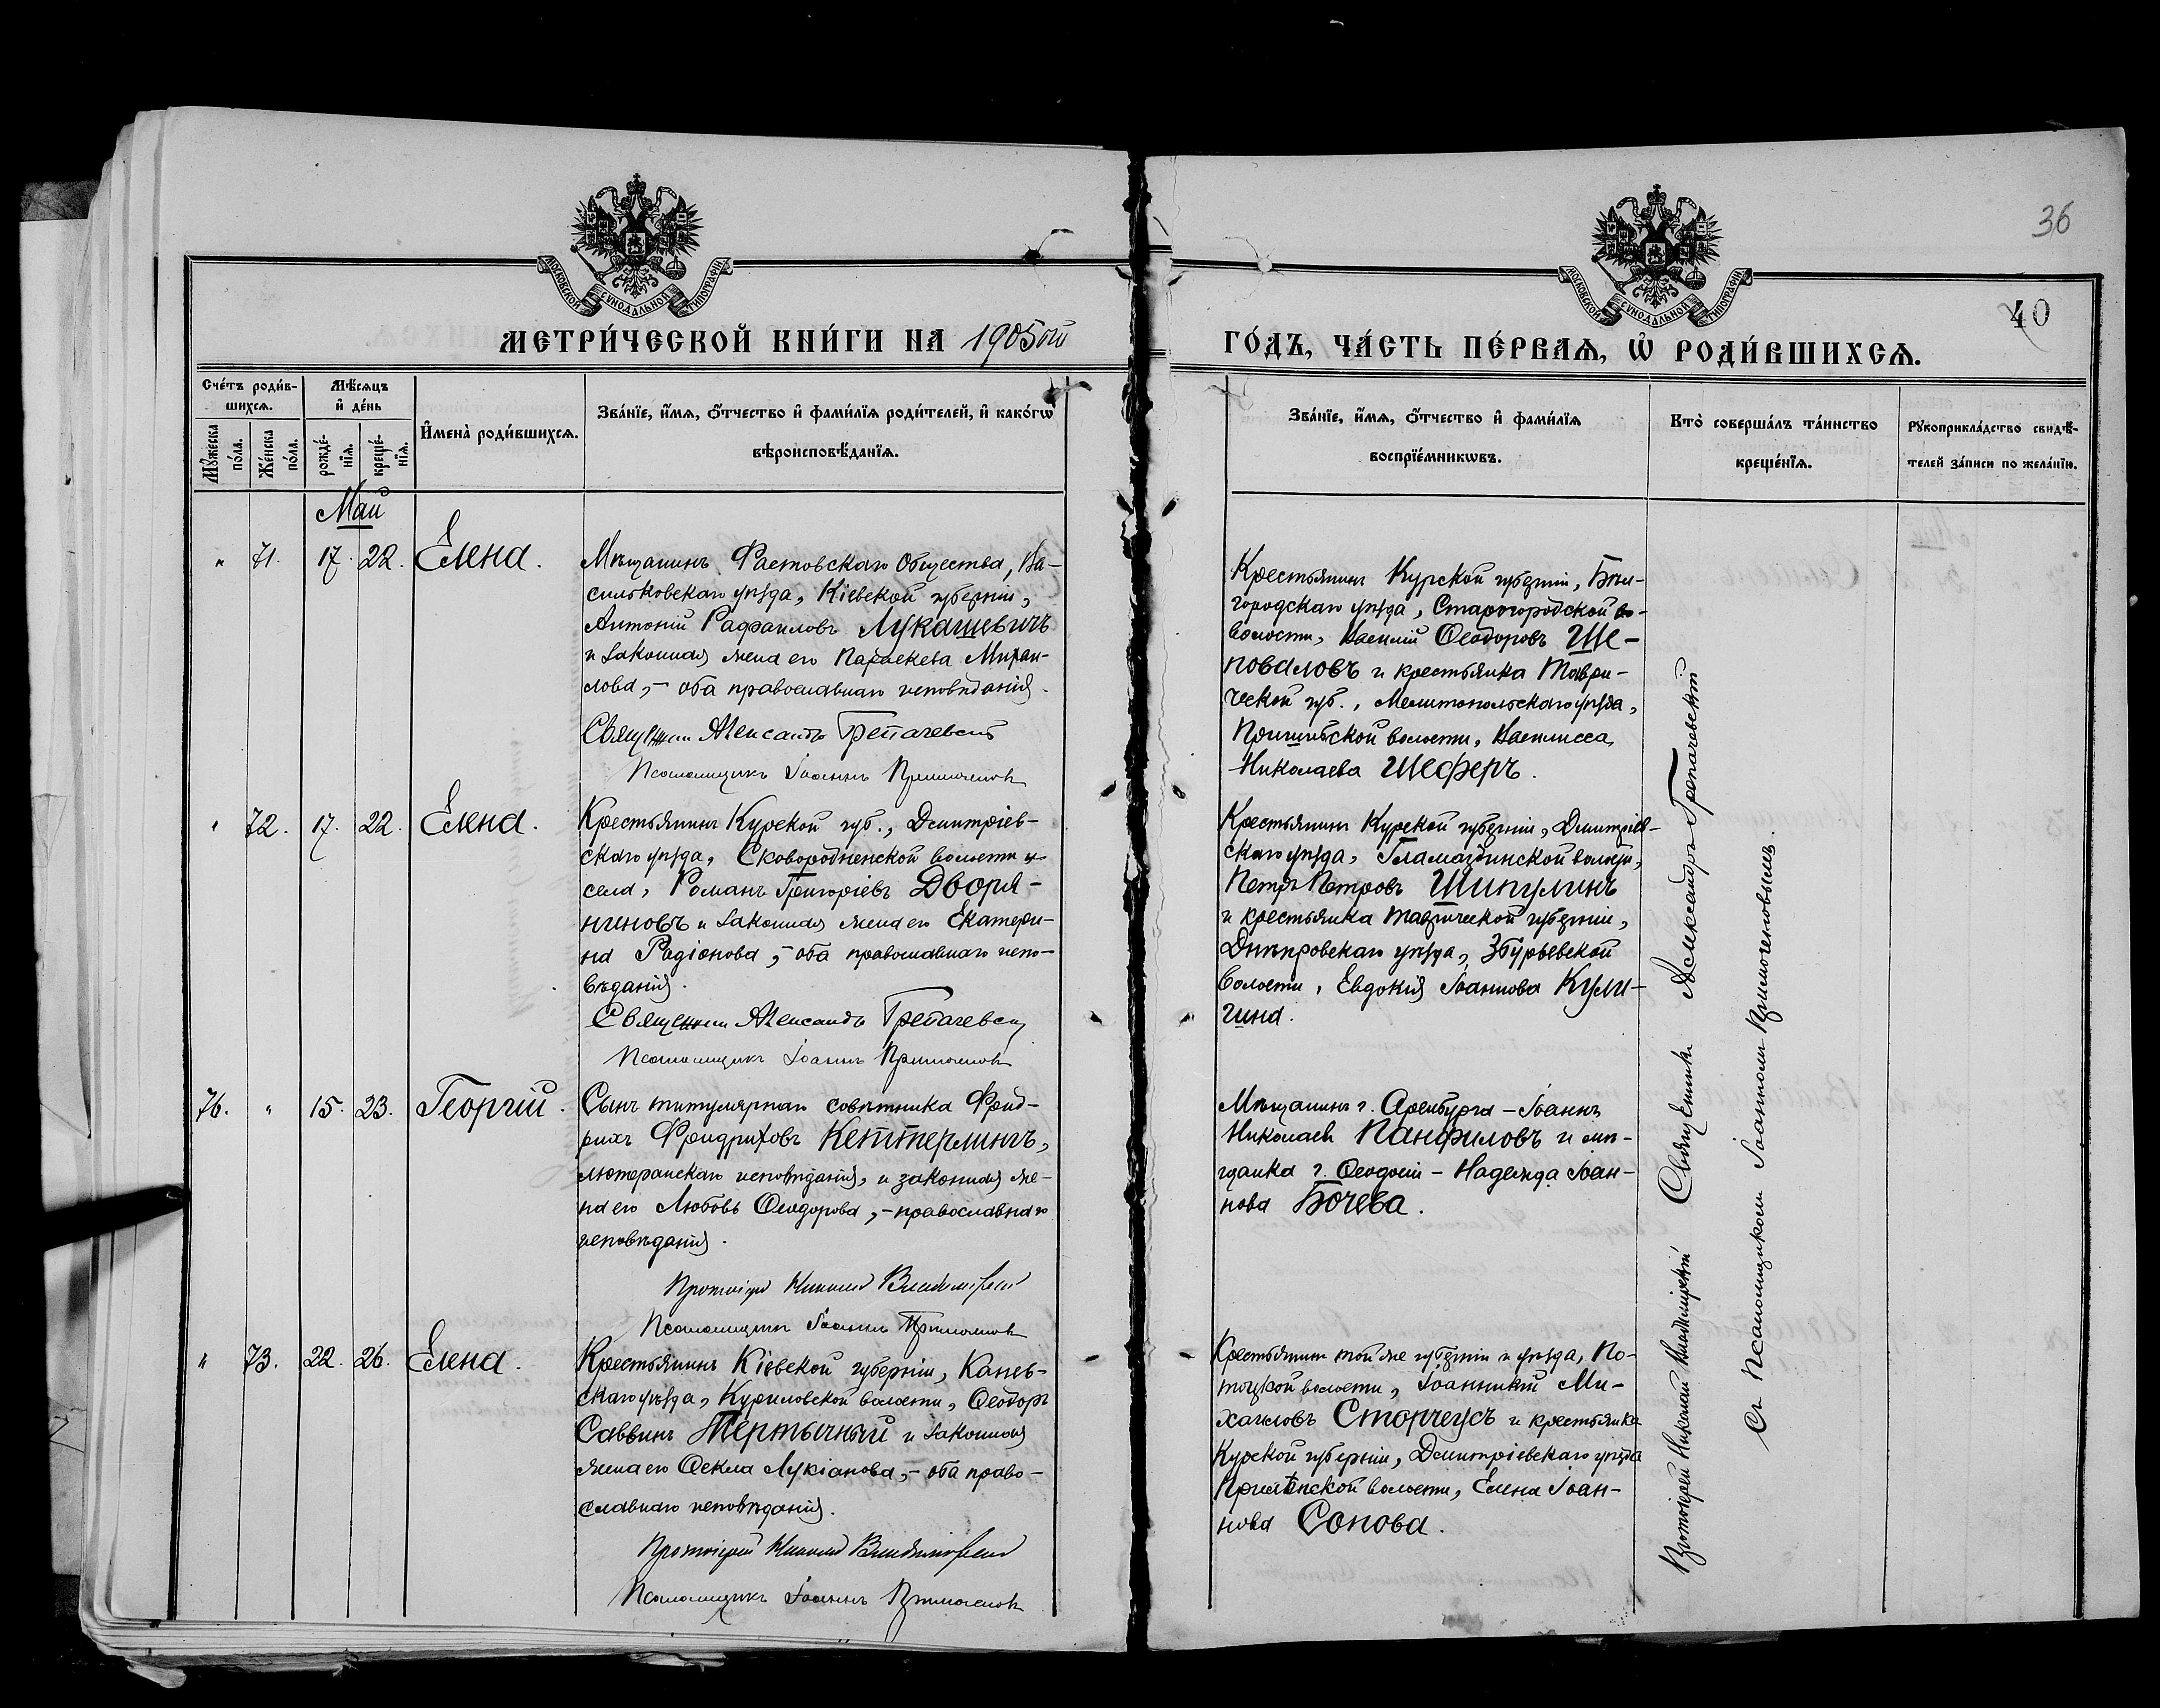 36
МОСКОВСКОЙ СУНОДАЛЬНОЙ ТИПОГРАФІИ
МОСКОВСКОЙ СУНОДАЛЬНОЙ ТИПОГРАФІИ
40
МЕТРИ́ЧЕСКОЙ КНИ́ГИ НА 1905ой
ГО́ДЪ, ЧА́СТЬ ПЕ́РВАѦ, Ѡ РОДИ́ВШИХСѦ.
Сче́тъ роди́в-
шихсѧ.
Мꙋ́жеска по́ла.
Же́нска по́ла.
Мѣ́сѧцъ
и҆ де́нь
рожде́-
нїѧ.
креще́-
нїѧ.
И҆мена̀ роди́вшихсѧ.
Зва́нїе, и҆́мѧ, ѻ҆́тчество и҆ фами́лїѧ роди́телей, и҆ како́гѡ
вѣроисповѣ́данїѧ.
Зва́нїе, и҆́мѧ, ѻ҆́тчество и҆ фами́лїѧ
воспрїе́мникѡвъ.
Кто̀ соверша́лъ та́инство
креще́нїѧ.
Рꙋкоприкла́дство свидѣ́-
телей за́писи по жела́нїю.
Май
" 71. 17. 22. Елена.
Мѣщанинъ Фастовскаго Общества, Ва-
сильковскаго уѣзда, Кіевской губерніи,
Антоній Рафаиловъ Лукашевичъ
и законная жена его Параскева Михаи-
лова, – оба православнаго исповѣданія.
Священникъ Александръ Трепачевскій
Псаломщикъ Іоаннъ
Крестьянинъ Курской губерніи, Бѣл-
городскаго уѣзда, Старогородской во-
волости, Василій Ѳеодоровъ Ше-
поваловъ и крестьянка Таври-
ческой губ., Мелитопольскаго уѣзда,
Пришибской волости, Василисса
Николаева Шеферъ.
" 72. 17. 22. Елена.
Крестьянинъ Курской губ., Дмитріев-
скаго уѣзда, Сковородненской волости и
села, Романъ Григоріевъ Дворя-
ниновъ и законная жена его Екатери-
на Радіонова, – оба православнаго испо-
вѣданія.
Священникъ Александръ Трепачевскій
Псаломщикъ Іоаннъ
Крестьянинъ Курской губерніи, Дмитріев-
скаго уѣзда, Гламаздинской волости,
Петръ Петровъ Шипулинъ
и крестьянка Таврической губерніи,
Днѣпровскаго уѣзда, Збурьевской
волости, Евдокія Іоаннова Кули-
гина.
76. " 15. 23. Георгій.
Сынъ титулярнаго совѣтника Фрид-
рихъ Фридриховъ Кеттерлингъ,
лютеранскаго исповѣданія, и законная же-
на его Любовь Ѳеодорова, – православнаго
исповѣданія.
Протоіерей Николай Владимірскій
Псаломщикъ Іоаннъ
Мѣщанинъ г. Оренбурга – Іоаннъ
Николаевъ Панфиловъ и мѣ-
щанка г. Ѳеодосіи – Надежда Іоан-
нова Бочева.
" 73. 22. 26. Елена.
Крестьянинъ Кіевской губерніи, Канев-
скаго уѣзда, Куриловской волости, Ѳеодоръ
Саввинъ Тертычный и законная
жена его Ѳекла Лукіанова, – оба право-
славнаго исповѣданія.
Протоіерей Николай Владимірскій
Псаломщикъ Іоаннъ
Крестьянинъ той же губерніи и уѣзда, По-
тоцкой волости, Іоанникій Ми-
хаиловъ Сторчеусъ и крестьянка
Курской губерніи, Дмитріевскаго уѣзда
волости, Елена Іоан-
нова Сопова.
Протоіерей Николай Владимірскій Священникъ Александръ Трепачевскій
Съ псаломщикомъ Іоанномъ